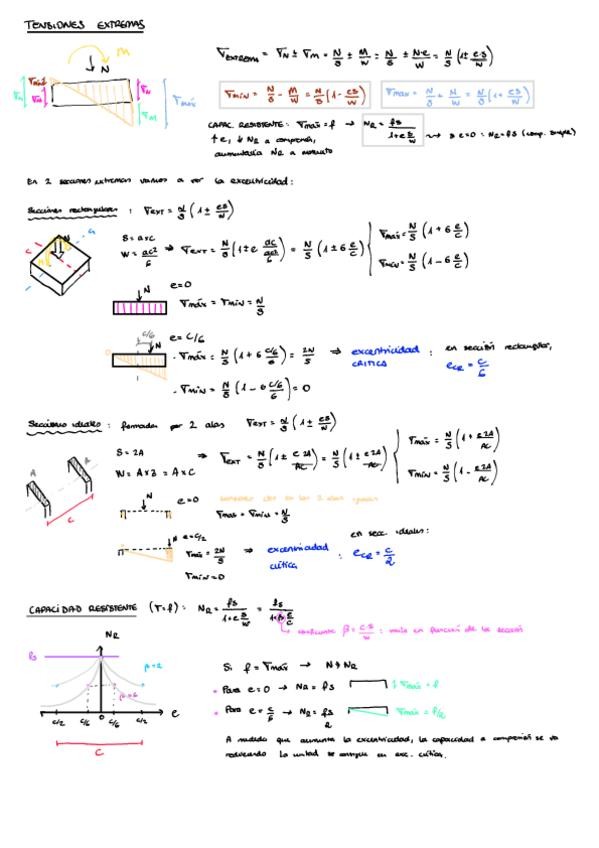 TENSIONES EXTREMAS
M
N
σEXTREMA = σN ± σM = N/S ± M/W = N/S ± N·e/W = N/S (1 ± e·S/W)
σmáx
σN
σM
σmin = N/S - M/W = N/S (1 - eS/W)
σmax = N/S + M/W = N/S (1 + eS/W)
CAPAC. RESISTENTE: σmáx = f → NR = fS / (1+e S/W) → si e=0: NR=fS (comp. simple)
↑ e, ↓ NR a compresión,
En 2 secciones extremas vamos a ver la excentricidad:
Secciones rectangulares: σEXT = N/S (1 ± eS/W)
S = a×c
W = ac²/6 → σEXT = N/S (1 ± e ac/(ac²/6)) = N/S (1 ± 6 e/c)
σmáx = N/S (1 + 6 e/c)
σmín = N/S (1 - 6 e/c)
N
e=0
σmáx = σmin = N/S
c/6
N
e = c/6
· σmáx = N/S (1 + 6 c/6/c) = 2N/S → excentricidad CRITICA : en sección rectangular, eCR = c/6
· σmin = N/S (1 - 6 c/6/c) = 0
Secciones ideales: formadas por 2 alas σEXT = N/S (1 ± eS/W)
A
A
C
S = 2A
W = A×z = A×C
→ σEXT = N/S (1 ± e 2A/AC) = N/S (1 ± e 2A/AC)
σmáx = N/S (1 + e 2A/AC)
σmín = N/S (1 - e 2A/AC)
N
e=0
en las 2 alas iguales
σmax = σmin = N/S
N
e = c/2
σmáx = 2N/S → excentricidad crítica : en secc. ideales: eCR = c/2
σmin = 0
CAPACIDAD RESISTENTE (σ=f): NR = fS / (1+e S/W) = fS / (1+β e/c)
coeficiente β = c·S/W : varía en función de la sección
NR
fS
β=2
β=6
c/2
c/6
0
c/6
c/2
e
C
Si f = σmáx → N = NR
· Para e=0 → NR = fS σmáx = f
· Para e = c/6 → NR = fS/2 σmáx = f/2
A medida que aumenta la excentricidad, la capacidad a compresión se va
reduciendo la mitad se consigue en exc. crítica.